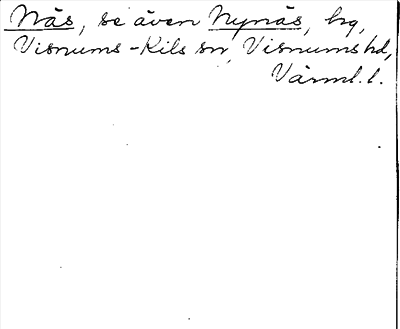 Näs, se även Nynäs, hg,
Visnums-Kils sn, Visnums hd,
Värml. l.